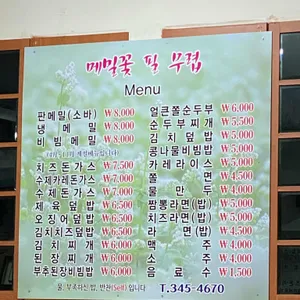 메밀꽃 필 무렵
Menu
판메밀(소바) ₩8,000
냉메밀 ₩8,000
비빔메밀 ₩8,000
치즈돈가스 ₩7,500
수제카레돈가스 ₩7,000
수제돈가스 ₩6,500
제육덮밥 ₩6,500
오징어덮밥 ₩6,500
김치치즈덮밥 ₩6,500
김치찌개 ₩6,000
된장찌개 ₩6,000
부추된장비빔밥 ₩6,000
얼큰쫄순두부 ₩6,000
순두부찌개 ₩5,500
김치덮밥 ₩5,500
콩나물비빔밥 ₩5,000
카레라이스 ₩5,000
쫄면 ₩4,500
물만두 ₩4,000
짬뽕라면(밥) ₩5,000
치즈라면(밥) ₩5,000
라면(밥) ₩4,500
맥주 ₩4,000
소주 ₩4,000
음료수 ₩1,500
물, 부족하신 밥, 반찬(Self)입니다
T.345-4670